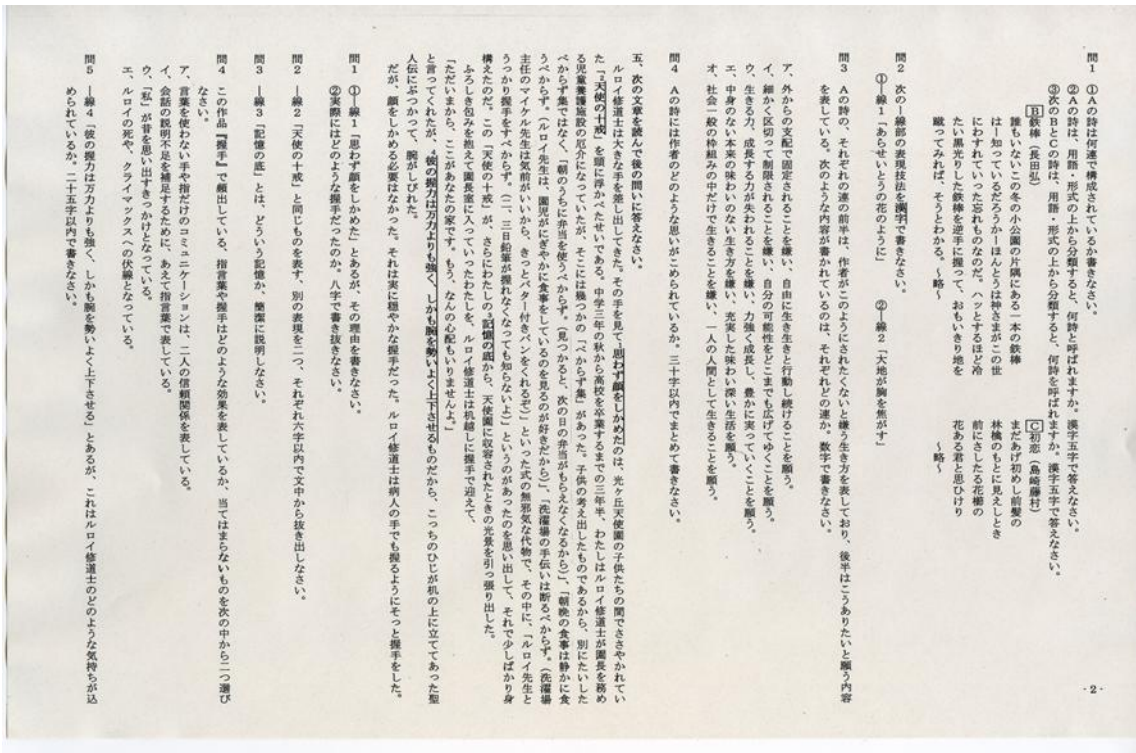 問1 ①Aの詩は何連で構成されているか書きなさい。
②Aの詩は、用語・形式の上から分類すると、何詩と呼ばれますか。漢字五字で答えなさい。
③次のBとCの詩は、用語・形式の上から分類すると、何詩を呼ばれますか。漢字五字で答えなさい。
B 鉄棒(長田弘)
誰もいないこの冬の小公園の片隅にある一本の鉄棒
はー知っているだろうかーほんとうは神さまがこの世
にわすれていった忘れものなのだ。ハッとするほど冷
たい黒光りした鉄棒を逆手に握って、おもいきり地を
蹴ってみれば、そうとわかる。 ~略~
C 初恋(島崎藤村)
まだあげ初めし前髪の
林檎のもとに見えしとき
前にさしたる花櫛の
花ある君と思ひけり
~略~
問2 次の―線部の表現技法を漢字で書きなさい。
①―線1「あらせいとうの花のように」 ②―線2「大地が胸を焦がす」
問3 Aの詩の、それぞれの連の前半は、作者がこのようにされたくないと嫌う生き方を表しており、後半はこうありたいと願う内容
を表している。次のような内容が書かれているのは、それぞれどの連か。数字で書きなさい。
ア、外からの支配で固定されることを嫌い、自由に生き生きと行動し続けることを願う。
イ、細かく区切って制限されることを嫌い、自分の可能性をどこまでも広げてゆくことを願う。
ウ、生きる力、成長する力が失われることを嫌い、力強く成長し、豊かに実っていくことを願う。
エ、中身のない本来の味わいのない生き方を嫌い、充実した味わい深い生活を願う。
オ、社会一般の枠組みの中だけで生きることを嫌い、一人の人間として生きることを願う。
問4 Aの詩には作者のどのような思いがこめられているか。三十字以内でまとめて書きなさい。
五、次の文章を読んで後の問いに答えなさい。
ルロイ修道士は大きな手を差し出してきた。その手を見て1思わず顔をしかめたのは、光ヶ丘天使園の子供たちの間でささやかれてい
た「2天使の十戒」を頭に浮かべたせいである。中学三年の秋から高校を卒業するまでの三年半、わたしはルロイ修道士が園長を務め
る児童養護施設の厄介になっていたが、そこには幾つかの「べからず集」があった。子供の考え出したものであるから、別にたいした
べからず集ではなく、「朝のうちに弁当を使うべからず。(見つかると、次の日の弁当がもらえなくなるから)」、「朝晩の食事は静かに食
うべからず。(ルロイ先生は、園児がにぎやかに食事をしているのを見るのが好きだから)」、「洗濯場の手伝いは断るべからず。(洗濯場
主任のマイケル先生は気前がいいから、きっとバター付きパンをくれるぞ)」といった式の無邪気な代物で、その中に、「ルロイ先生と
うっかり握手をすべからず。(二、三日鉛筆が握れなくなっても知らないよ)」というのがあったのを思い出して、それで少しばかり身
構えたのだ。この「天使の十戒」が、さらにわたしの3記憶の底から、天使園に収容されたときの光景を引っ張り出した。
ふろしき包みを抱えて園長室に入っていったわたしを、ルロイ修道士は机越しに握手で迎えて、
「ただいまから、ここがあなたの家です。もう、なんの心配もいりませんよ。」
と言ってくれたが、4彼の握力は万力よりも強く、しかも腕を勢いよく上下させるものだから、こっちのひじが机の上に立ててあった聖
人伝にぶつかって、腕がしびれた。
だが、顔をしかめる必要はなかった。それは実に穏やかな握手だった。ルロイ修道士は病人の手でも握るようにそっと握手をした。
問1 ①―線1「思わず顔をしかめた」とあるが、その理由を書きなさい。
②実際にはどのような握手だったのか。八字で書き抜きなさい。
問2 ―線2「天使の十戒」と同じものを表す、別の表現を二つ、それぞれ六字以内で文中から抜き出しなさい。
問3 ―線3「記憶の底」とは、どういう記憶か、簡潔に説明しなさい。
問4 この作品『握手』で頻出している、指言葉や握手はどのような効果を表しているか、当てはまらないものを次の中から二つ選び
なさい。
ア、言葉を使わない手や指だけのコミュニケーションは、二人の信頼関係を表している。
イ、会話の説明不足を補足するために、あえて指言葉で表している。
ウ、「私」が昔を思い出すきっかけとなっている。
エ、ルロイの死や、クライマックスへの伏線となっている。
問5 ―線4「彼の握力は万力よりも強く、しかも腕を勢いよく上下させる」とあるが、これはルロイ修道士のどのような気持ちが込
められているか。二十五字以内で書きなさい。
- 2 -